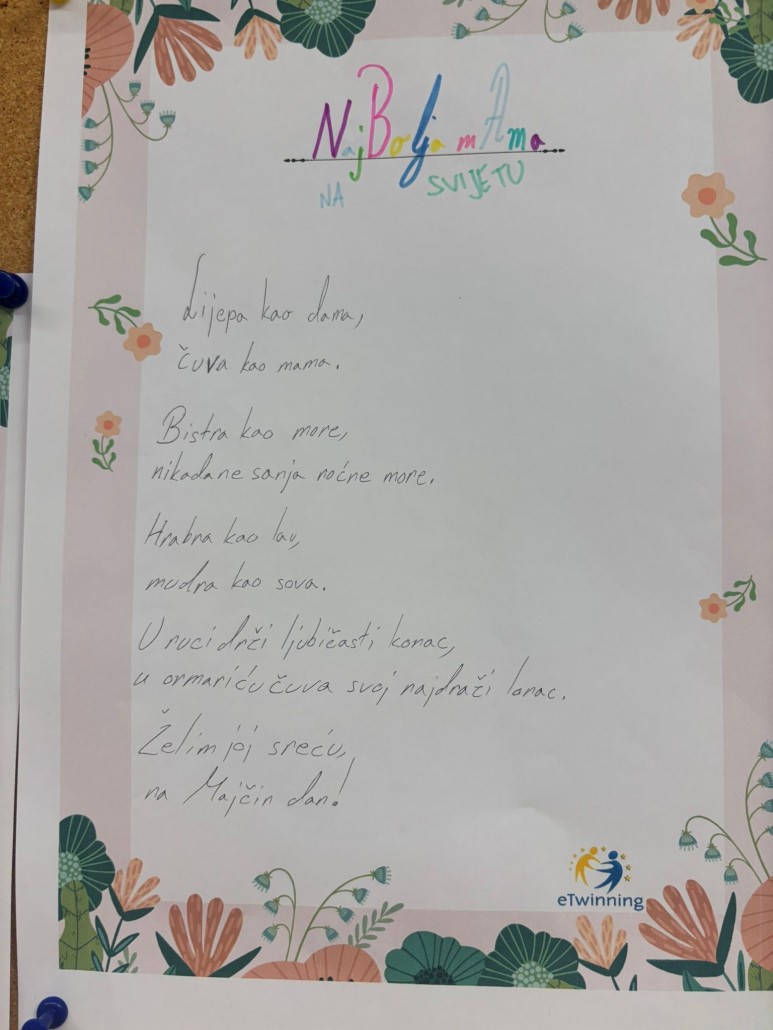 NajBolja mAma
NA SVIJETU
Lijepa kao dama,
čuva kao mama.
Bistra kao more,
nikada ne sanja noćne more.
Hrabra kao lav,
mudra kao sova.
U ruci drži ljubičasti konac,
u ormariću čuva svoj najdraži lonac.
Želim joj sreću,
na Majčin dan!
eTwinning